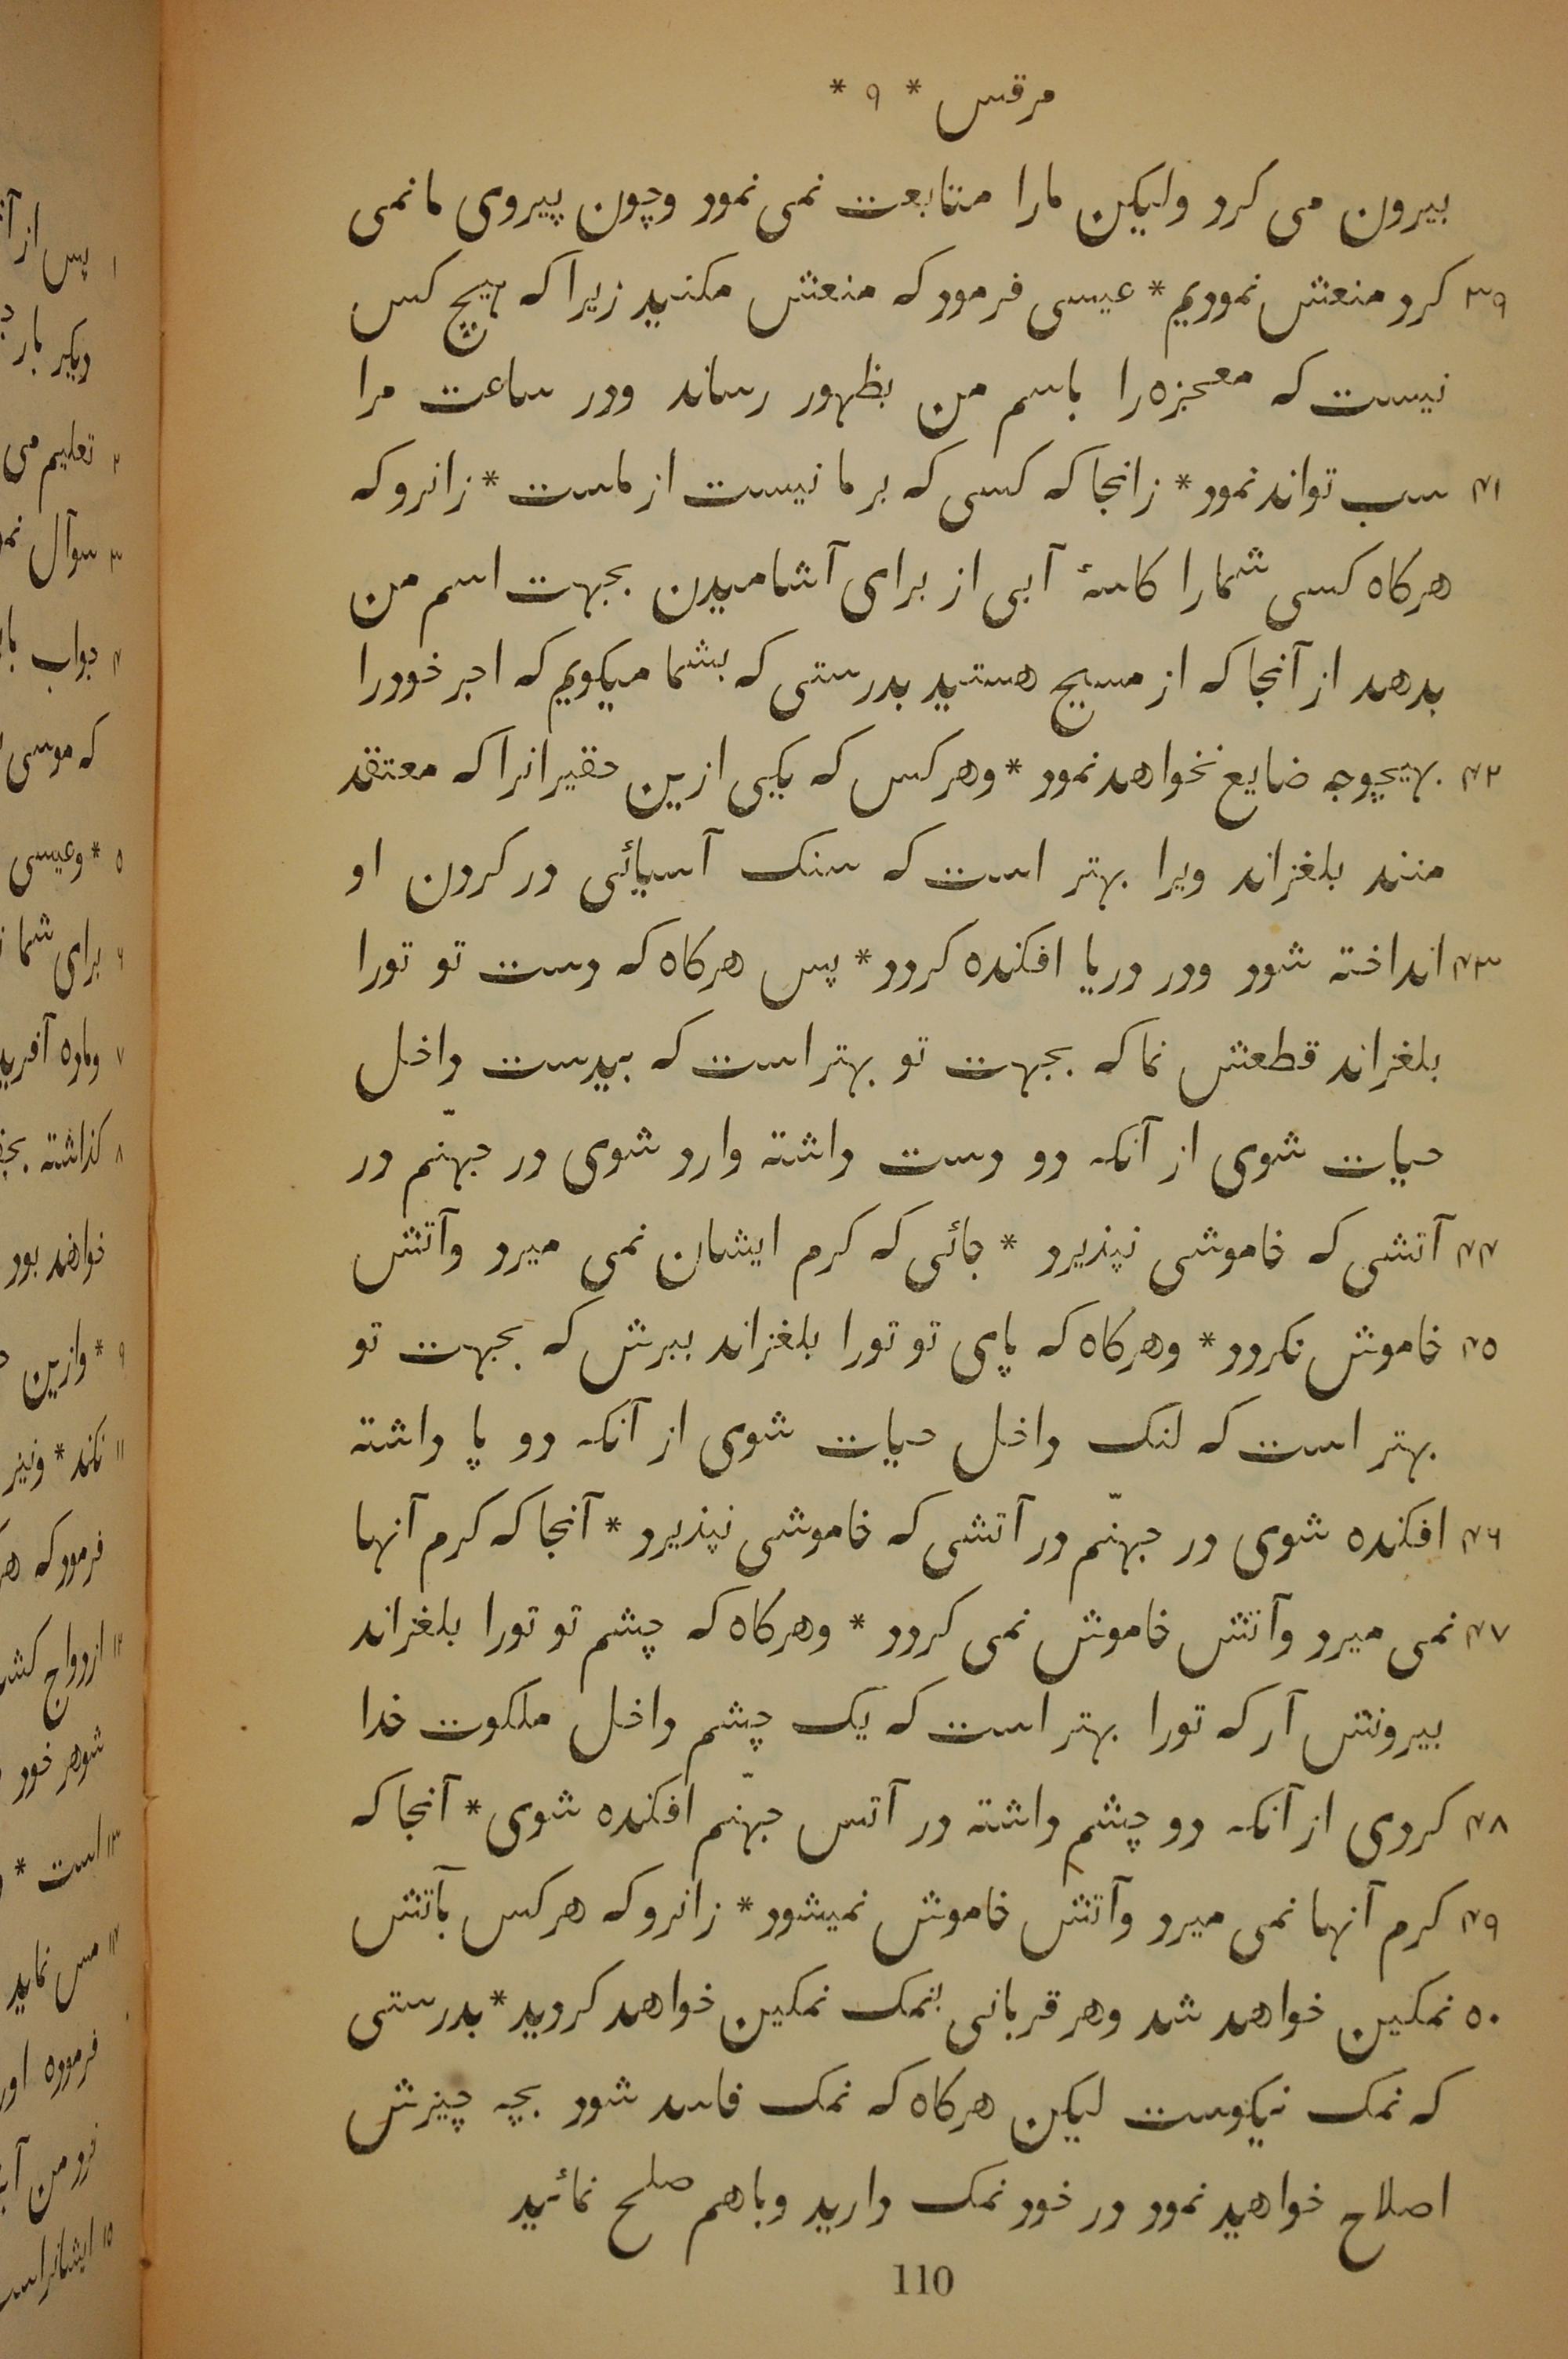 مرقس * ۹ *
بیرون می کرد ولیکن مارا متابعت نمی نمود وچون پیروی ما نمی
۳۹ کرد منعش نمودیم * عیسی فرمود که منعش مکنید زیرا که هیچ کس
نیست که معجزه را باسم من بظهور رساند ودر ساعت مرا
۴۱ سب تواند نمود * زانجا که کسی که بر ما نیست از ماست * زانرو که
هرکاه کسی شمارا کاسۀ آبی از برای آشامیدن بجهت اسم من
بدهد از آنجا که از مسیح هستید بدرستی که بشما میکویم که اجر خودرا
۴۲ بهیچوجه ضایع نخواهد نمود * وهر کس که یکی ازین حقیرانرا که معتقد
منند بلغزاند ویرا بهتر است که سنک آسیائی در کردن او
۴۳ انداخته شود ودر دریا افکنده کردد * پس هرکاه که دست تو تورا
بلغزاند قطعش نما که بجهت تو بهتر است که بیدست داخل
حیات شوی از آنکه دو دست داشته وارد شوی در جهنّم در
۴۴ آتشی که خاموشی نپذیرد * جائی که کرم ایشان نمی میرد وآتش
۴۵ خاموش نکردد * وهرکاه که پای تو تورا بلغزاند ببرش که بجهت تو
بهتر است که لنک داخل حیات شوی از آنکه دو پا داشته
۴۶ افکنده شوی در جهنّم در آتشی که خاموشی نپذیرد * آنجا که کرم آنها
۴۷ نمی میرد وآتش خاموش نمی کردد * وهرکاه که چشم تو تورا بلغزاند
بیرونش آر که تورا بهتر است که یک چشم داخل ملکوت خدا
۴۸ کردی از آنکه دو چشم داشته در آتس جهنّم افکنده شوی * آنجا که
۴۹ کرم آنها نمی میرد وآتش خاموش نمیشود * زانرو که هر کس بآتش
۵۰ نمکین خواهد شد وهر قربانی بنمک نمکین خواهد کردید * بدرستی
که نمک نیکوست لیکن هرکاه که نمک فاسد شود بچه چیزش
اصلاح خواهید نمود در خود نمک دارید وباهم صلح نمائید
110
۱ پس از
دیکر بار
۲ تعلیم می
۳ سوآل
۴ جواب
که موسی
۵ * وعیسی
۶ برای شما
۷ وماده
۸ کذاشته
خواهند بود
۹ * وازین
۱۱ نکند * ونیز
فرمود که
۱۲ ازدواج
شوهر خود
۱۳ است *
۱۴ مس نماید
فرموده
نزد من
۱۵